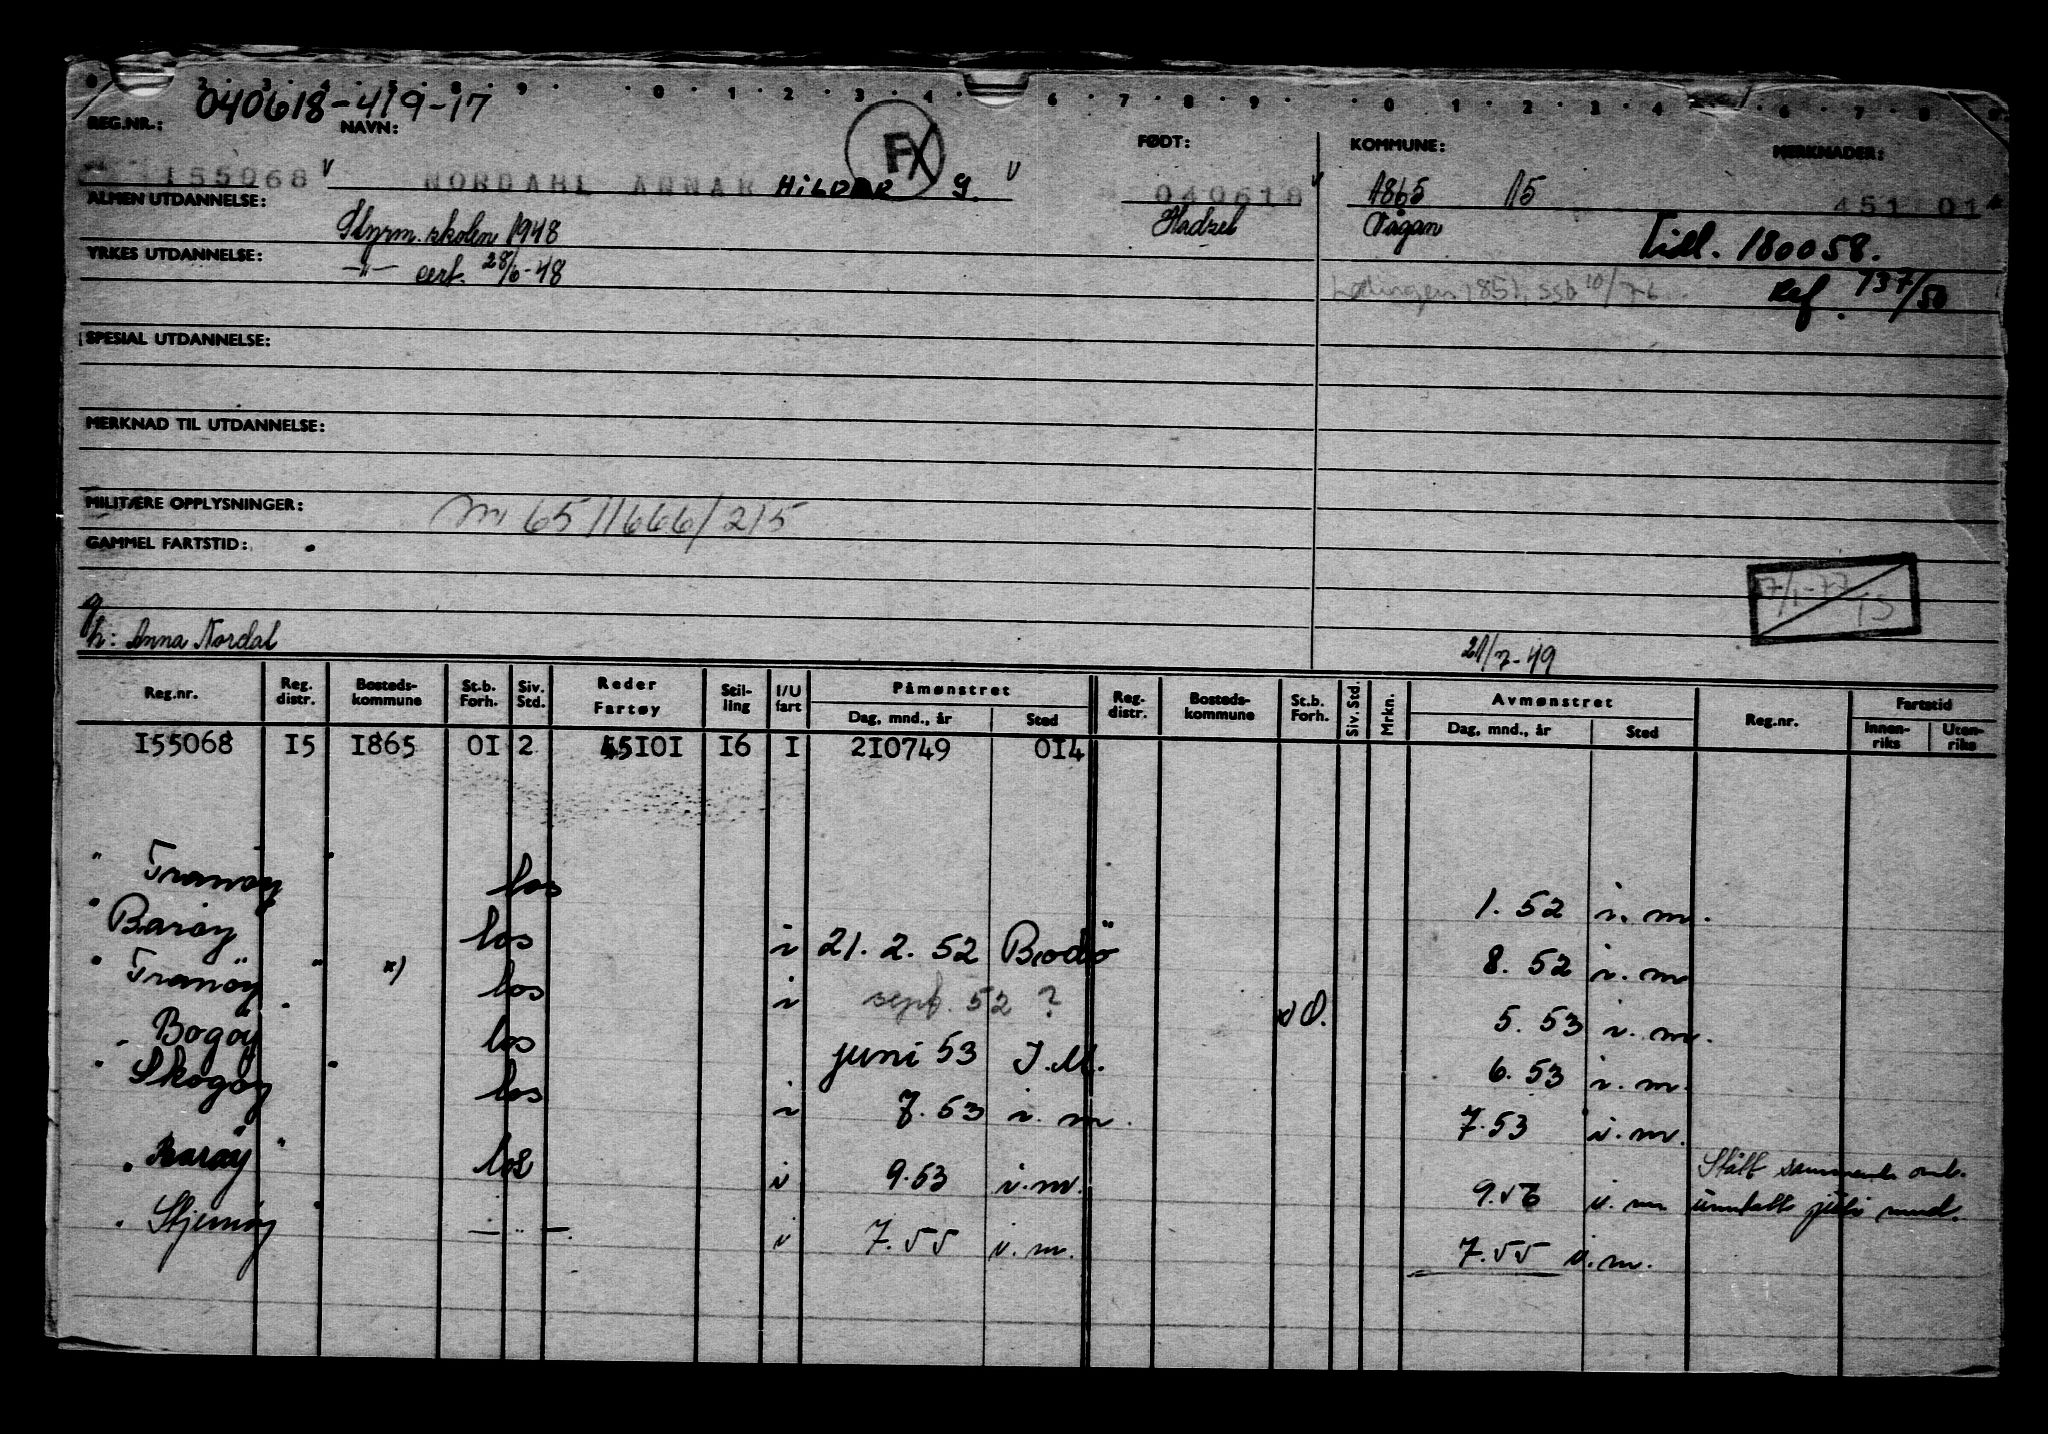 040618-419-17
REG.NR.: NAVN: FØDT: KOMMUNE: MERKNADER:
155068 NORDAHL ANNAR HILDER G. FX 040618 1865 15 451101
ALMEN UTDANNELSE: Styrm.skolen 1948 Hadsel Vågan Tidl. 180058.
YRKES UTDANNELSE: —"— cert. 28/6-48 Lødingen 1851, ssb 10/76 Ref. 737/50
SPESIAL UTDANNELSE:
MERKNAD TIL UTDANNELSE:
MILITÆRE OPPLYSNINGER: m 65/1666/215
GAMMEL FARTSTID:
7/1-77 TS
g
h: Anna Nordal 21/7-49
Reg.nr. Reg. distr. Bosteds-kommune St.b. Forh. Siv. Std. Reder Fartøy Stil-ling I/U fart Påmønstret Dag, mnd., år Sted Reg. distr. Bosteds-kommune St.b. Forh. Siv. Std. Mrkn. Avmønstret Dag, mnd., år Sted Reg.nr. Fartstid Innen-riks Uten-riks
I55068 I5 I865 0I 2 45I0I I6 I 2I0749 0I4
"Tranøy" los 1. 52 i. m.
"Barøy" los i 21. 2. 52 Bodö 8. 52 i. m
"Tranöy" x) los i sept. 52 ? x) O. 5. 53 i. m.
"Bogöy" los juni 53 I.M. 6. 53 i. m.
"Skogøy" los i 7. 53 i. m. 7.53 i. m.
"Barøy" los i 9.53 i.m. 9.56 i. m Stått sammenh. omb. unntatt juli mnd.
"Stjernøy" —"—. i 7.55 i.m. 7.55 i.m.